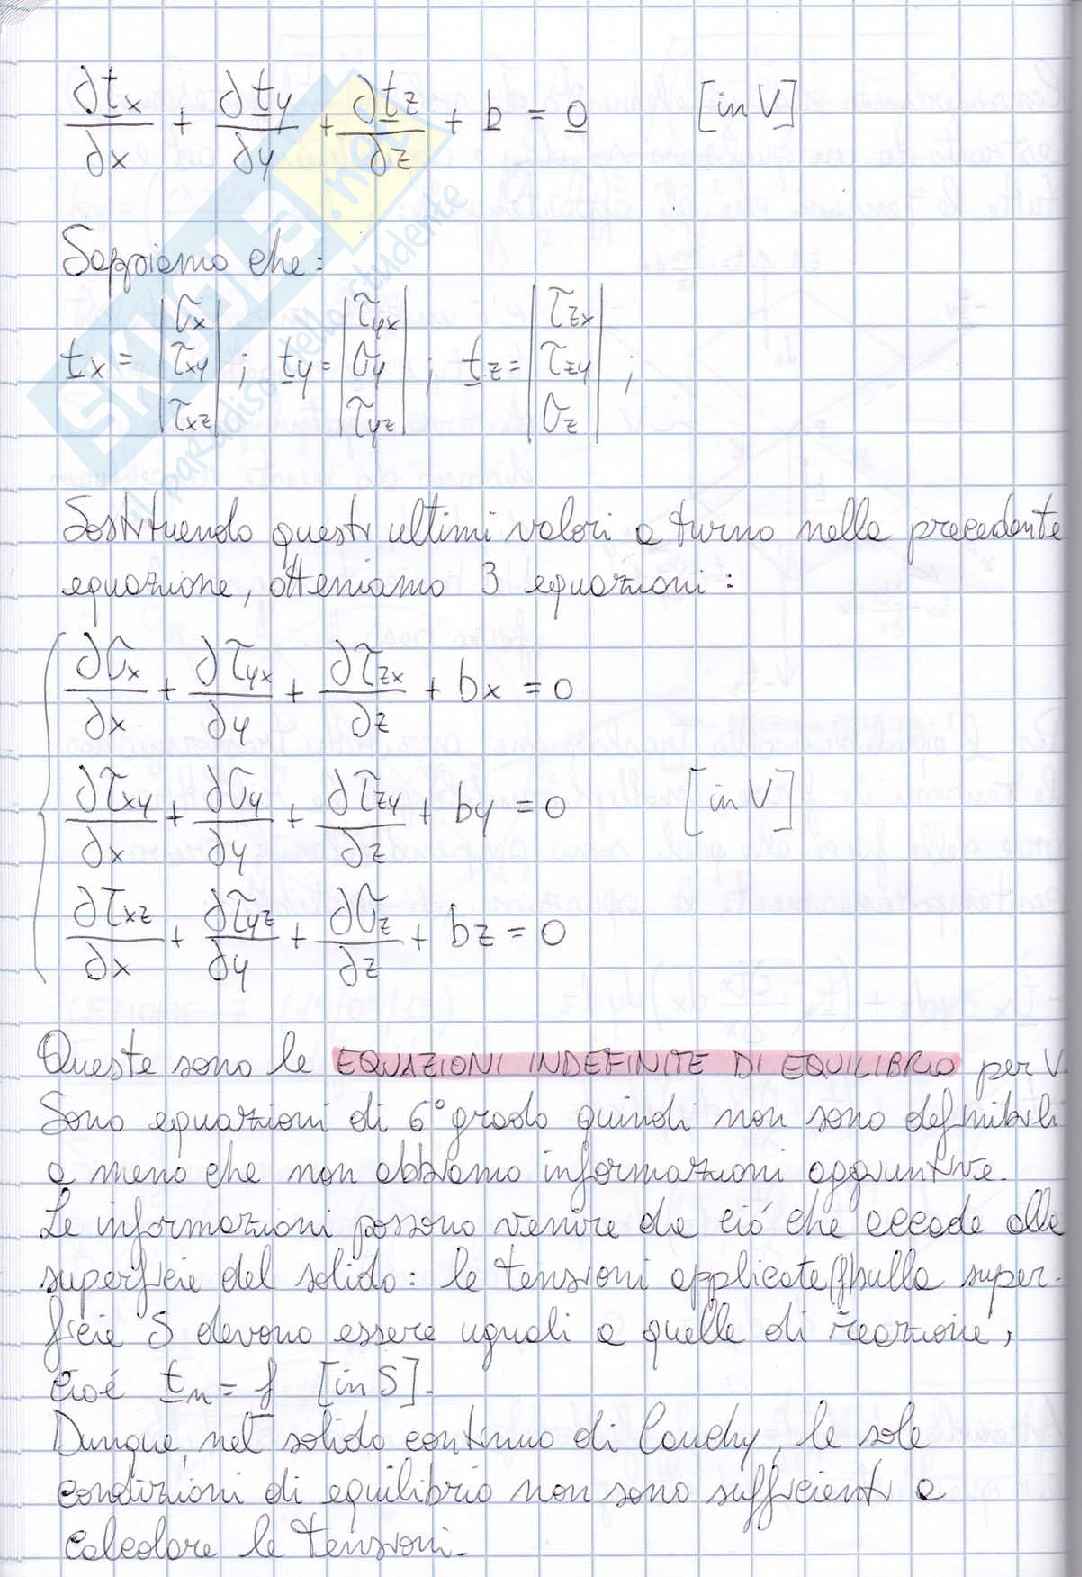 ∂t̲x/∂x + ∂t̲y/∂y + ∂t̲z/∂z + b̲ = 0̲ [in V]
Sappiamo che:
t̲x = |σx τxy τxz| ; t̲y = |τyx σy τyz| ; t̲z = |τzx τzy σz| ;
Sostituendo questi ultimi valori a turno nella precedente
equazione, otteniamo 3 equazioni:
∂σx/∂x + ∂τyx/∂y + ∂τzx/∂z + bx = 0
∂τxy/∂x + ∂σy/∂y + ∂τzy/∂z + by = 0 [in V]
∂τxz/∂x + ∂τyz/∂y + ∂σz/∂z + bz = 0
Queste sono le EQUAZIONI INDEFINITE DI EQUILIBRIO per V.
Sono equazioni di 6° grado quindi non sono definibili
a meno che non abbiamo informazioni aggiuntive.
Le informazioni possono venire da ció che accade alla
superficie del solido: le tensioni applicate (f) sulla super-
ficie S devono essere uguali a quelle di reazione,
cioé t̲n = f̲ [in S].
Dunque, nel solido continuo di Cauchy, le sole
condizioni di equilibrio non sono sufficienti a
calcolare le tensioni.
SKUOLA.net
il paradiso dello studente